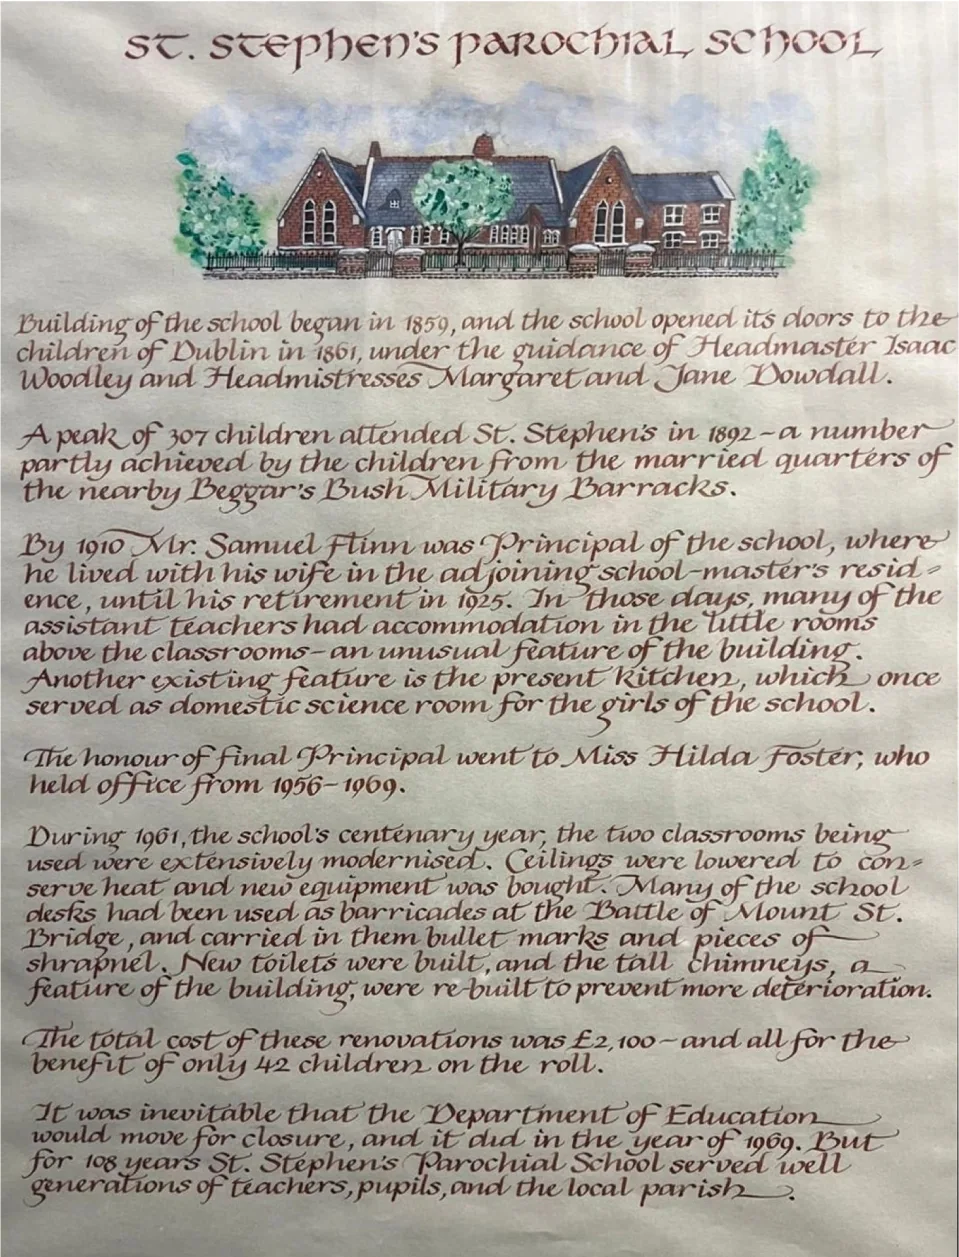 St. Stephen's Parochial School
Building of the school began in 1859, and the school opened its doors to the
children of Dublin in 1861, under the guidance of Headmaster Isaac
Woodley and Headmistresses Margaret and Jane Dowdall.
A peak of 307 children attended St. Stephen's in 1892 - a number
partly achieved by the children from the married quarters of
the nearby Beggar's Bush Military Barracks.
By 1910 Mr. Samuel Flinn was Principal of the school, where
he lived with his wife in the adjoining school-master's resid-
ence, until his retirement in 1925. In those days, many of the
assistant teachers had accommodation in the little rooms
above the classrooms - an unusual feature of the building.
Another existing feature is the present kitchen, which once
served as domestic science room for the girls of the school.
The honour of final Principal went to Miss Hilda Foster, who
held office from 1956 - 1969.
During 1961, the school's centenary year, the two classrooms being
used were extensively modernised. Ceilings were lowered to con-
serve heat and new equipment was bought. Many of the school
desks had been used as barricades at the Battle of Mount St.
Bridge, and carried in them bullet marks and pieces of
shrapnel. New toilets were built, and the tall chimneys, a
feature of the building, were re-built to prevent more deterioration.
The total cost of these renovations was £2,100 - and all for the
benefit of only 42 children on the roll.
It was inevitable that the Department of Education
would move for closure, and it did in the year of 1969. But
for 108 years St. Stephen's Parochial School served well
generations of teachers, pupils, and the local parish.